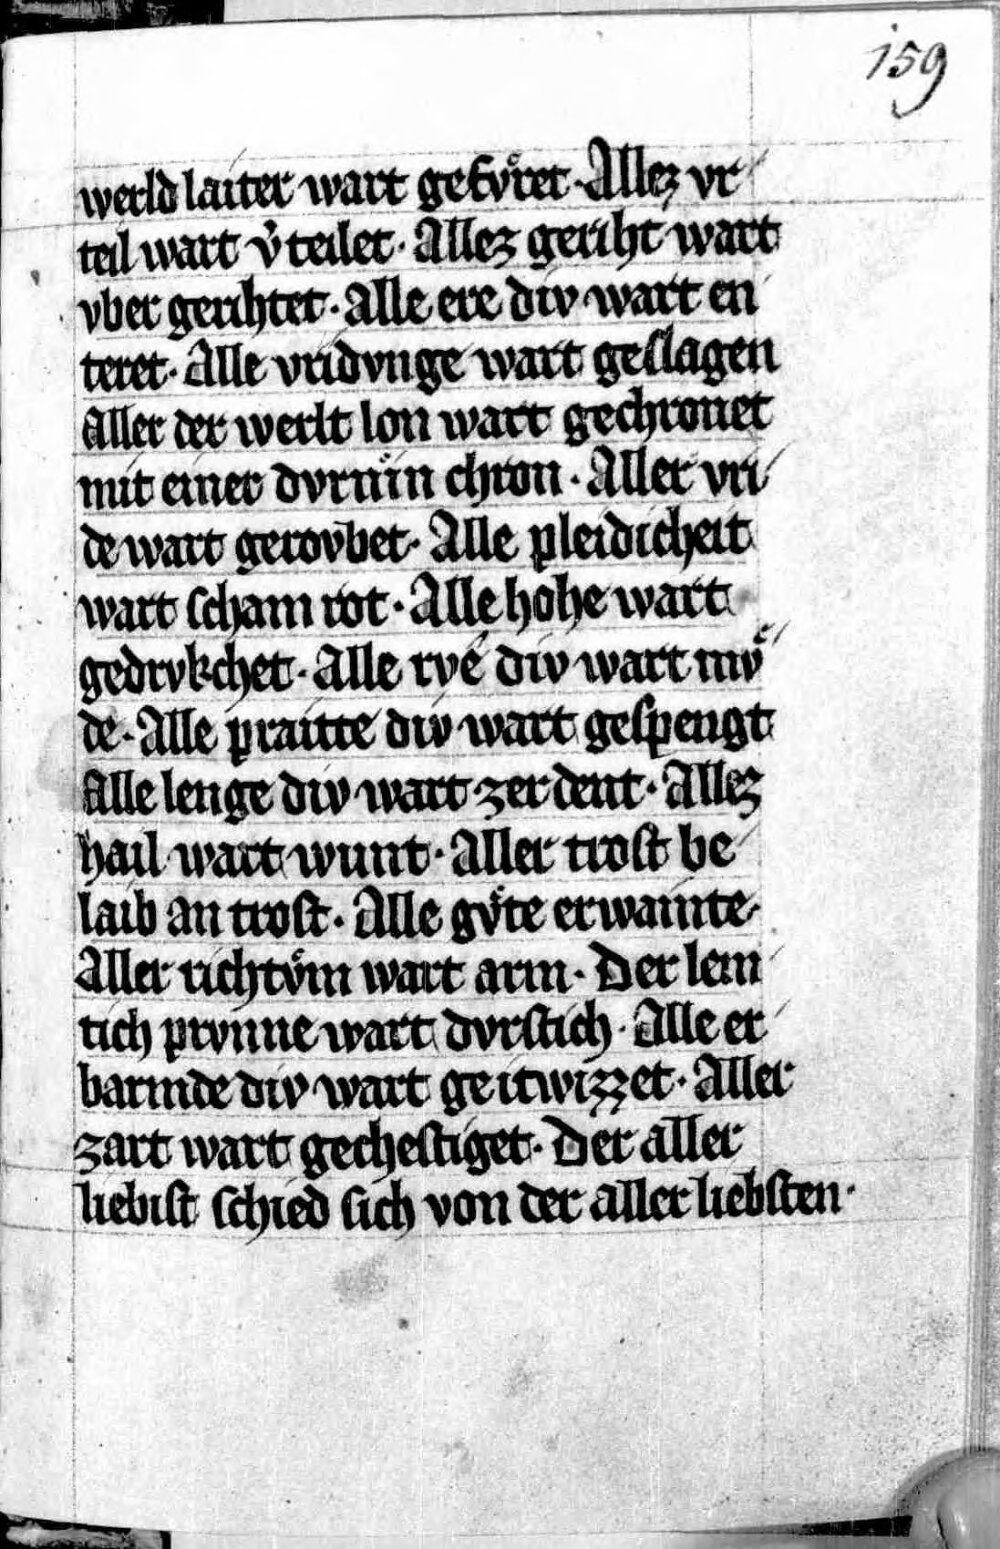 159
werld laiter wart gefvͦret · Allez vr
teil wart v̓teilet · Allez geriht wart
vber gerihtet · Alle ere div wart en
teret · Alle vridvnge wart geslagen
Aller der werlt lon wart gechronet
mit einer dvrnͥin chron · Aller vri
de wart gerovbet · Alle pleidicheit
wart scham rot · Alle hohe wart
gedrvkchet · Alle rve div wart mvͤ
de · Alle praitte div wart gespengt
Alle lenge div wart zerdent · Allez
hail wart wunt · Aller trost be
laib an trost · Alle gvͤte erwainte ·
Aller richtvͦm wart arm · Der lem
tich prvnne wart dvrstich · Alle er
barmde div wart geitwizzet · Aller
zart wart gechestiget · Der aller
liebist schied sich von der aller liebsten ·